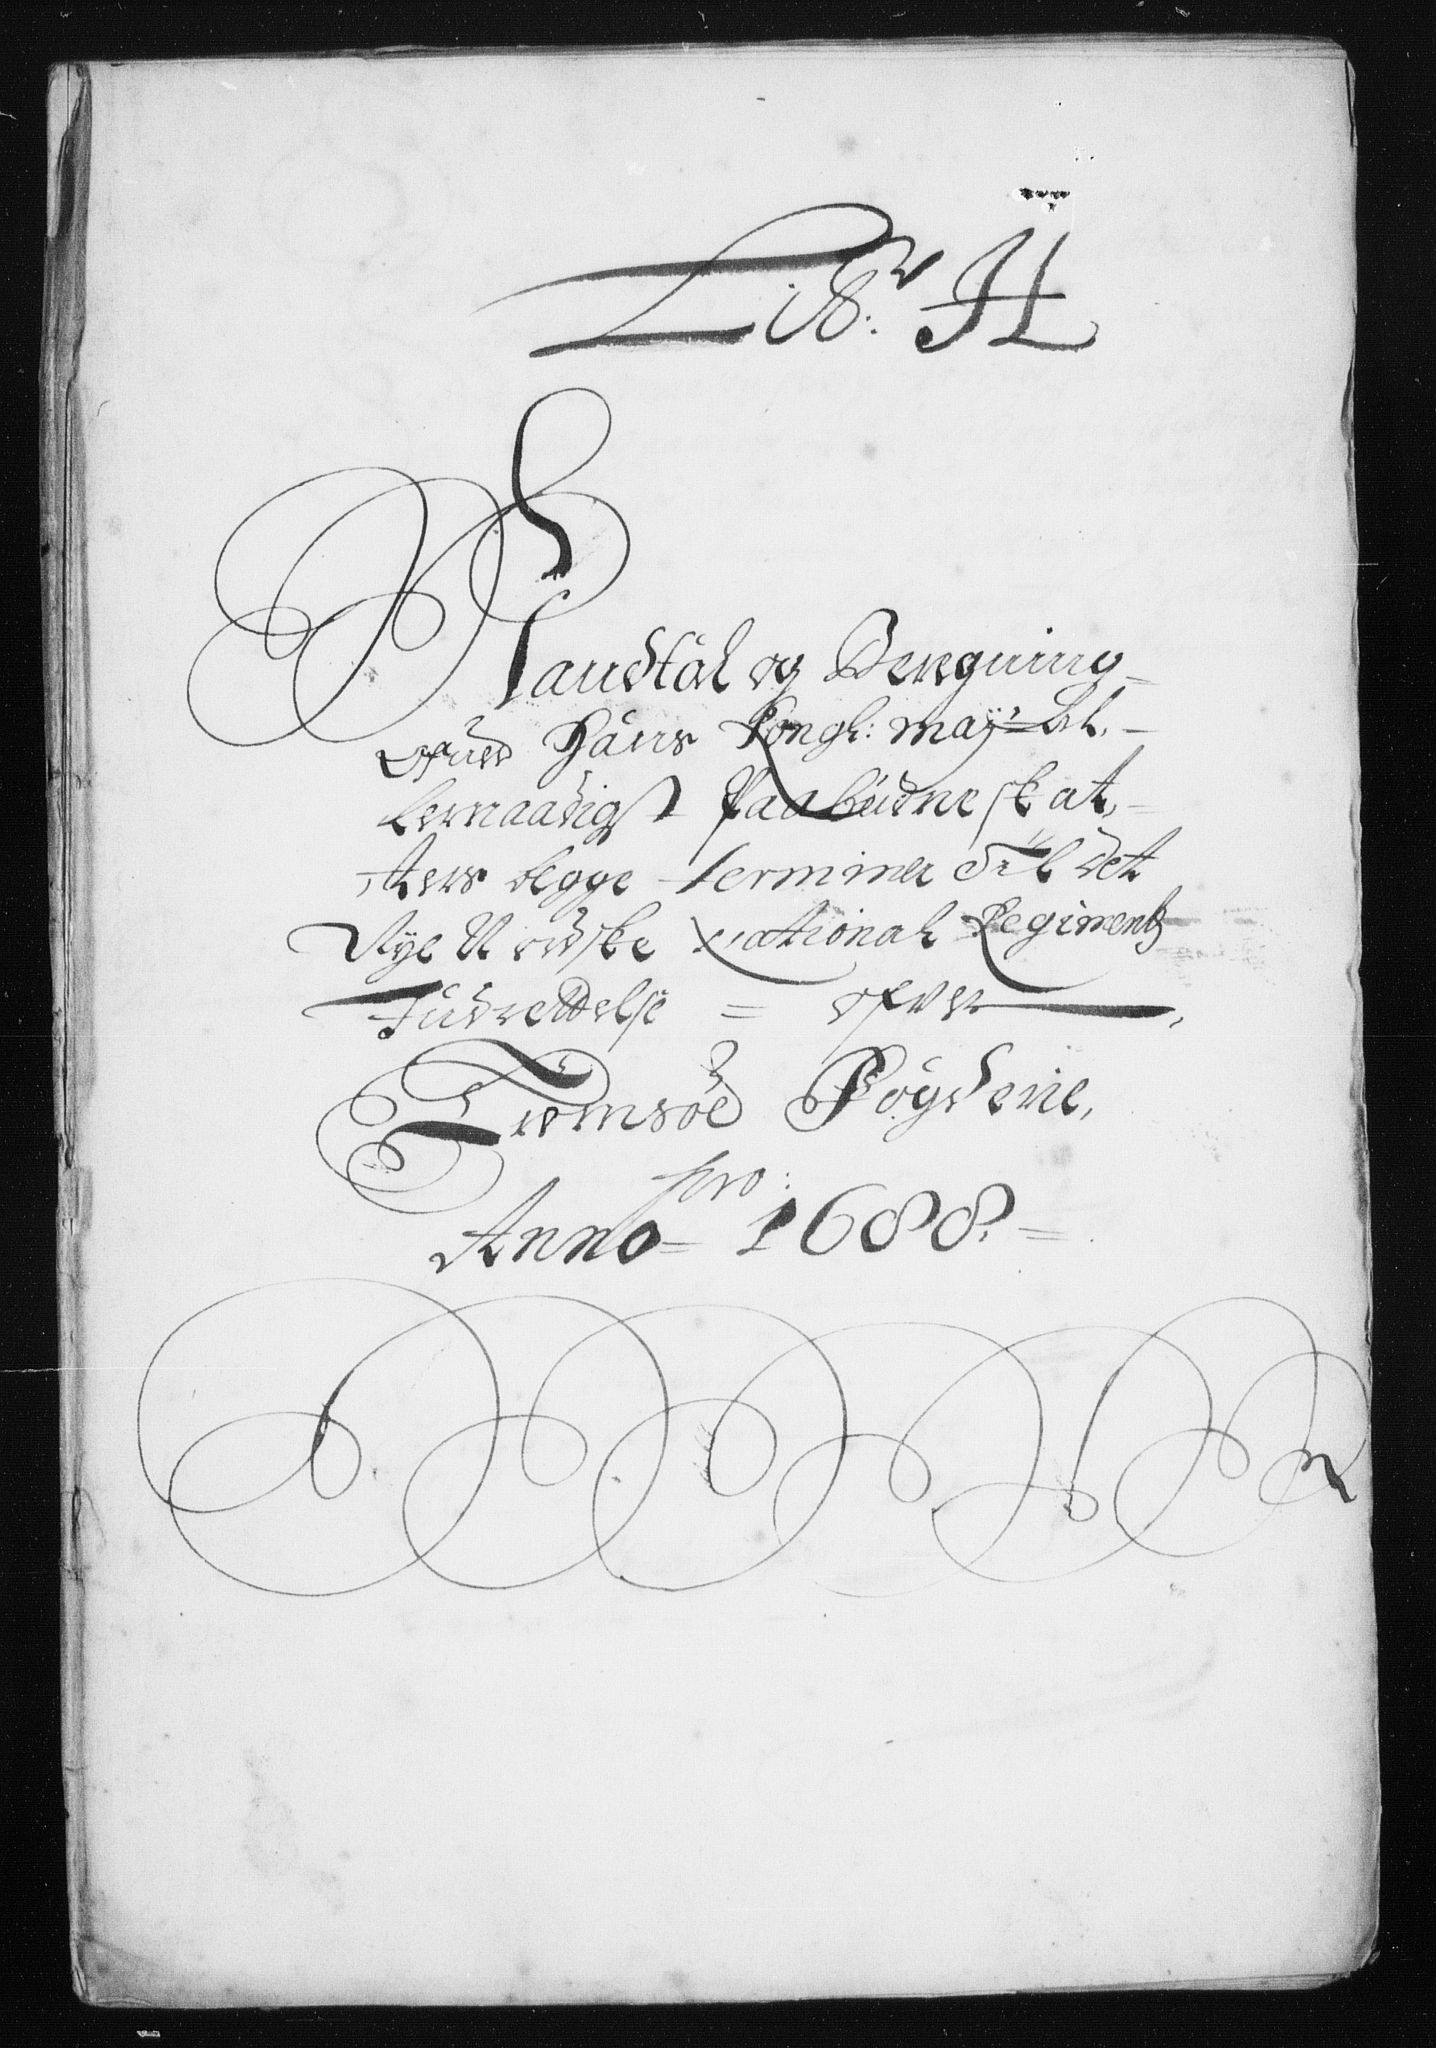 Litr: H
Mandtal og Beregning
ofuer Hans Kongl: May: al.
lernaadigst Paabudne skat,
ters begge Terminer til det
Nye Norske National Regiments
Indrettelse = ofver
Tromsöe Fogderie,
pro:
Anno = 1688.